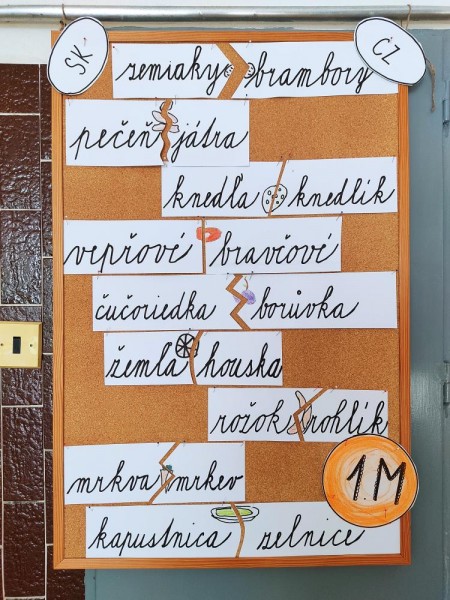 SK
ČZ
zemiaky brambory
pečeň játra
knedľa knedlík
vepřové bravčové
čučoriedka borůvka
žemľa houska
rožok rohlík
mrkva mrkev
1.M
kapustnica zelnice